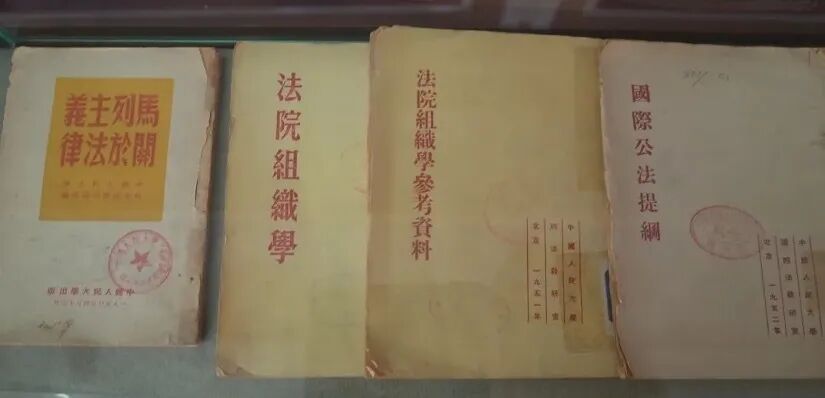 馬列主義
關於法律
中國人民大學出版
法院組織學
法院組織學參考資料
中國人民大學
刑法教研室
北京 一九五一年
國際公法提綱
中國人民大學
國際法教研室
北京 一九五二年